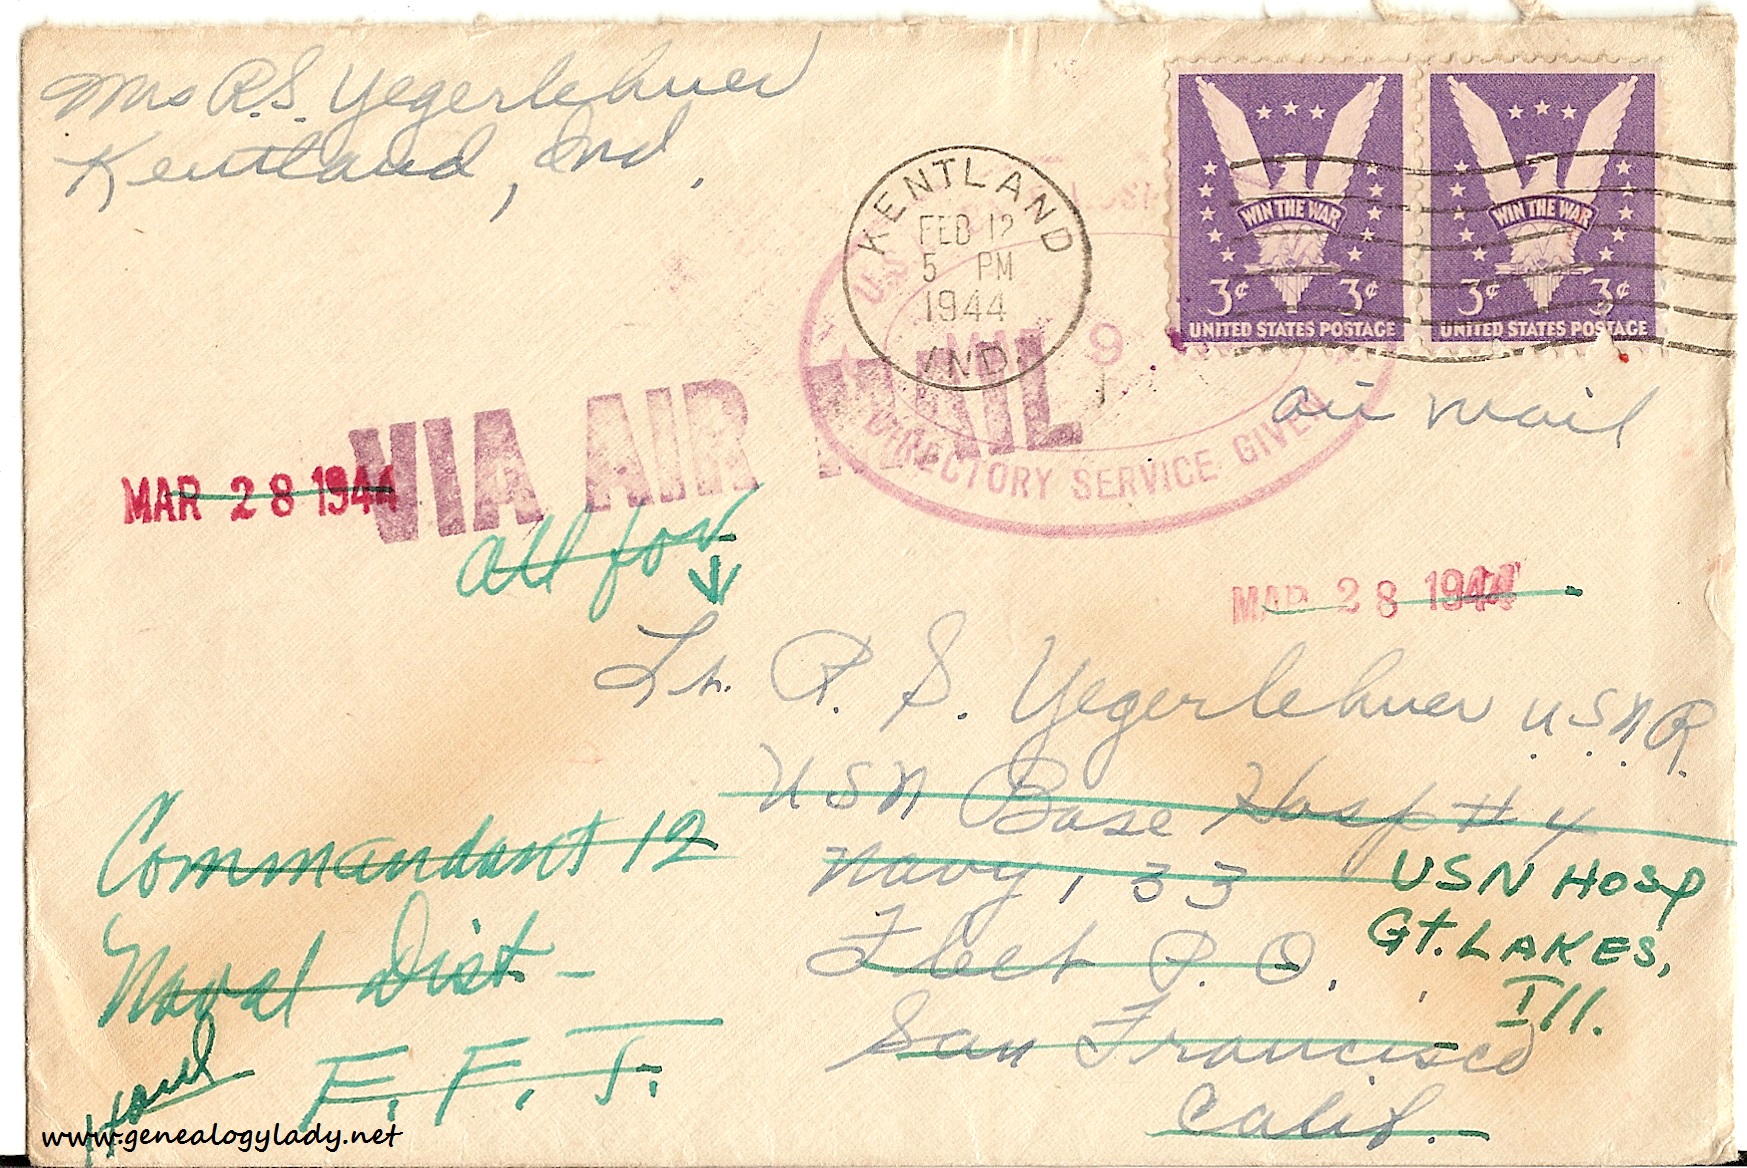 Mrs R.S. Yegerlehner
Kentland, Ind.
KENTLAND
FEB 12
5 PM
1944
IND.
WIN THE WAR
3¢ 3¢
UNITED STATES POSTAGE
WIN THE WAR
3¢ 3¢
UNITED STATES POSTAGE
air mail
U.S.
9
DIRECTORY SERVICE GIVEN
VIA AIR MAIL
MAR 28 1944
all for
MAR 28 1944
Lt. R. S. Yegerlehner U.S.N.R.
USN Base Hosp #4
Navy, 133
Fleet P. O.
San Francisco
Calif.
USN Hosp
Gt. LAKES,
Ill.
Commandant 12
Naval Dist -
F. F. T.
www.genealogylady.net